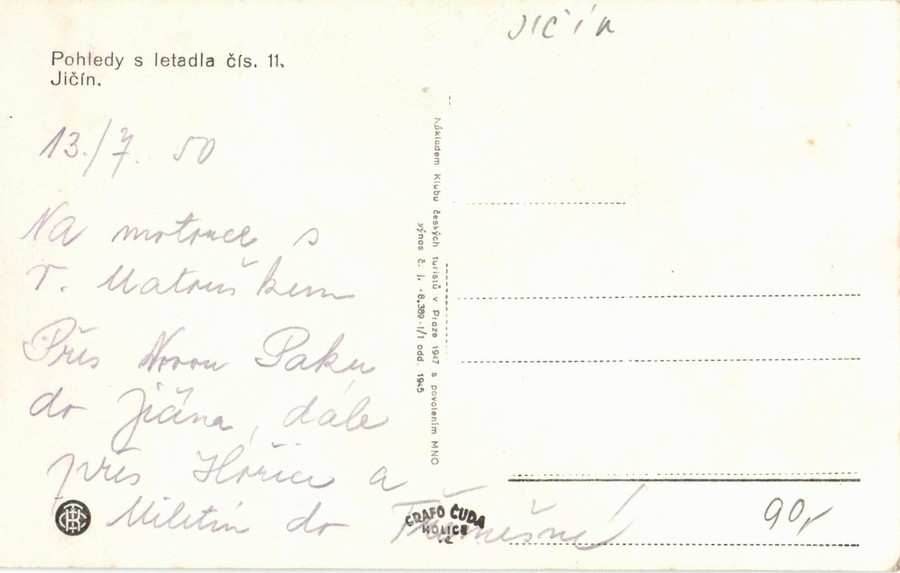 JIČÍN
Pohledy s letadla čís. 11.
Jičín.
13./7. 50
Na motorce s
T. Matouškem
Přes Novou Paku
do Jičína, dále
přes Hořice a
Miletín do Třemešné
Nákladem Klubu českých turistů v Praze 1947 s povolením MNO
výnos č. j. 8.389-I/1 odd. 1945
GRAFO ČUDA
HOLICE
90,-